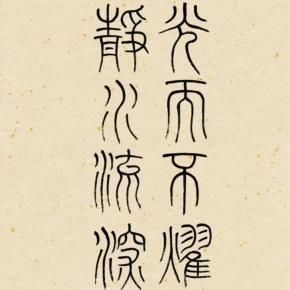 光而不耀
靜水流深